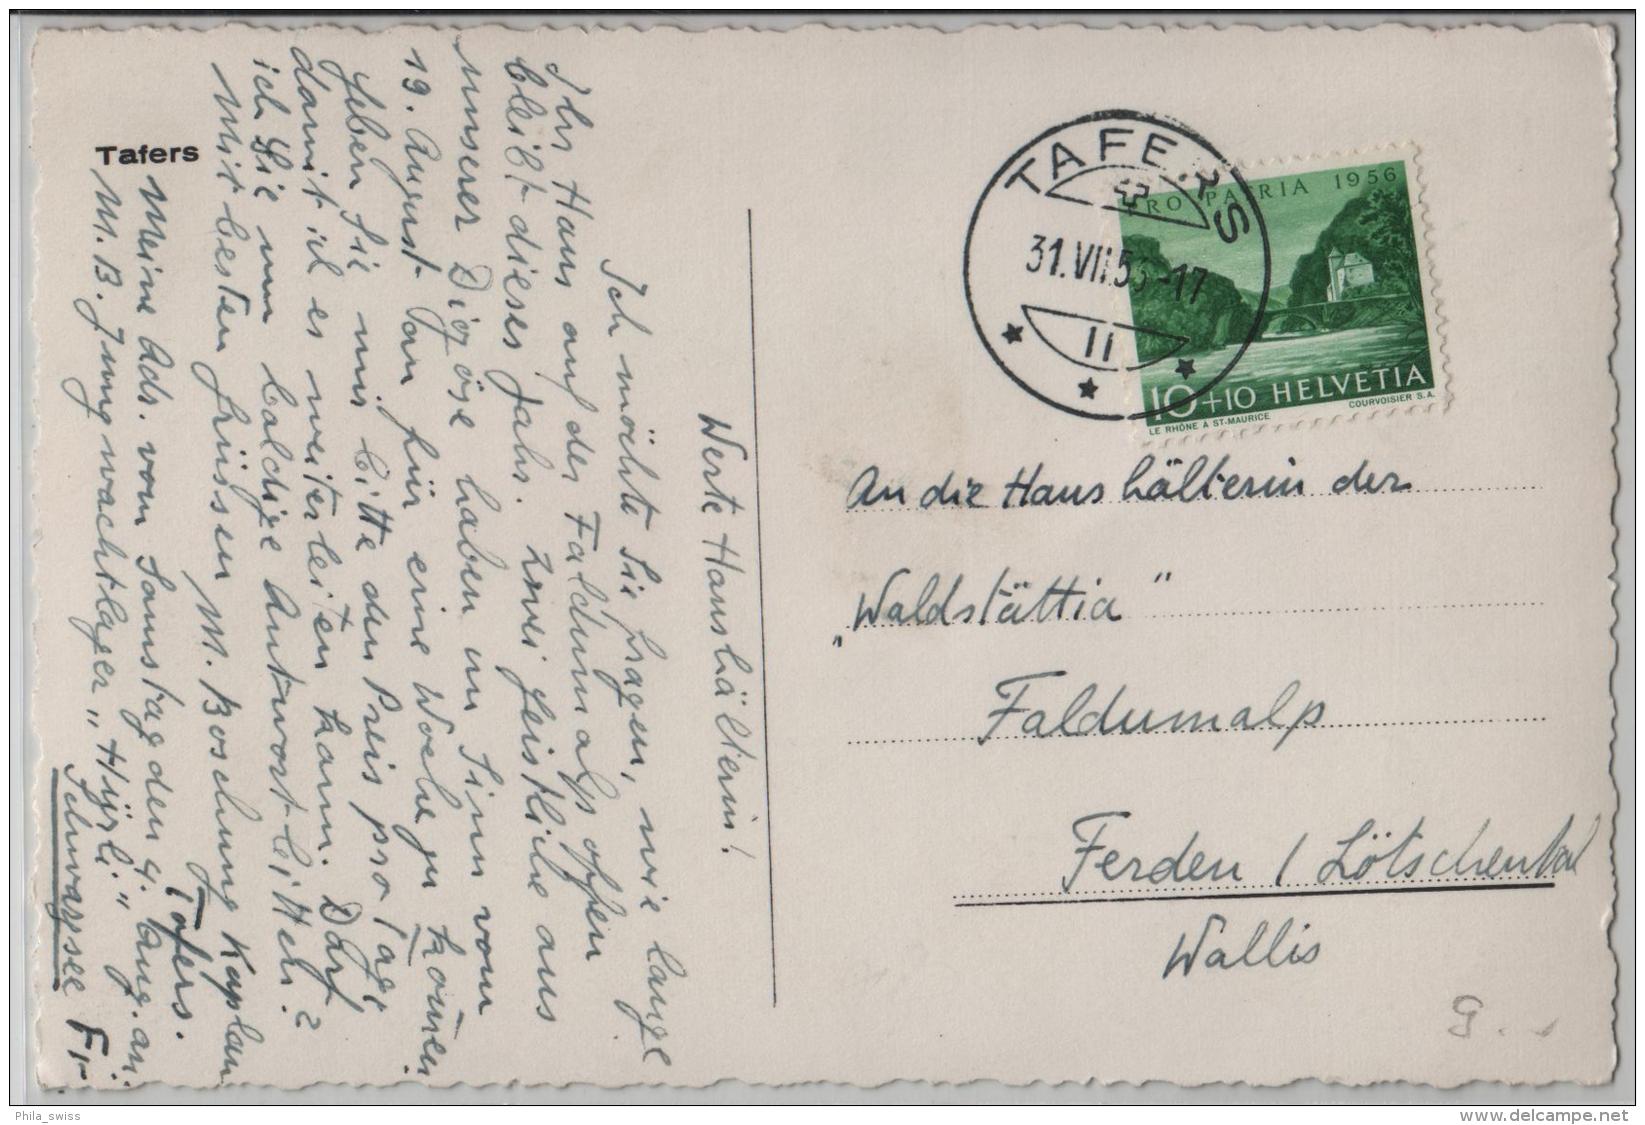 Tafers
Werte Haushälterin!
Ich möchte Sie fragen, wie lange
Ihr Haus auf der Faldumalp offen
bleibt dieses Jahr. Zwei Geistliche aus
unserer Diözöse haben im Sinn vom
19. August an für eine Woche zu kommen.
Geben Sie mir bitte den Preis pro Tag
damit ich es weiterleiten kann. Darf
ich Sie um baldige Antwort bitten?
Mit besten Grüssen
M. Boschung Kaplan
Tafers.
Meine Adr. vom Samstag den 4. Aug. an:
M. B. Jungwachtlager „Hürli"
Schwarzsee Fr
TAFERS
31.VII.56-17
PRO PATRIA 1956
10+10 HELVETIA
LE RHÔNE A ST-MAURICE
COURVOISIER S.A.
An die Haushälterin der
„Waldstättia"
Faldumalp
Ferden / Lötschental
Wallis
Phila_swiss
www.delcampe.net